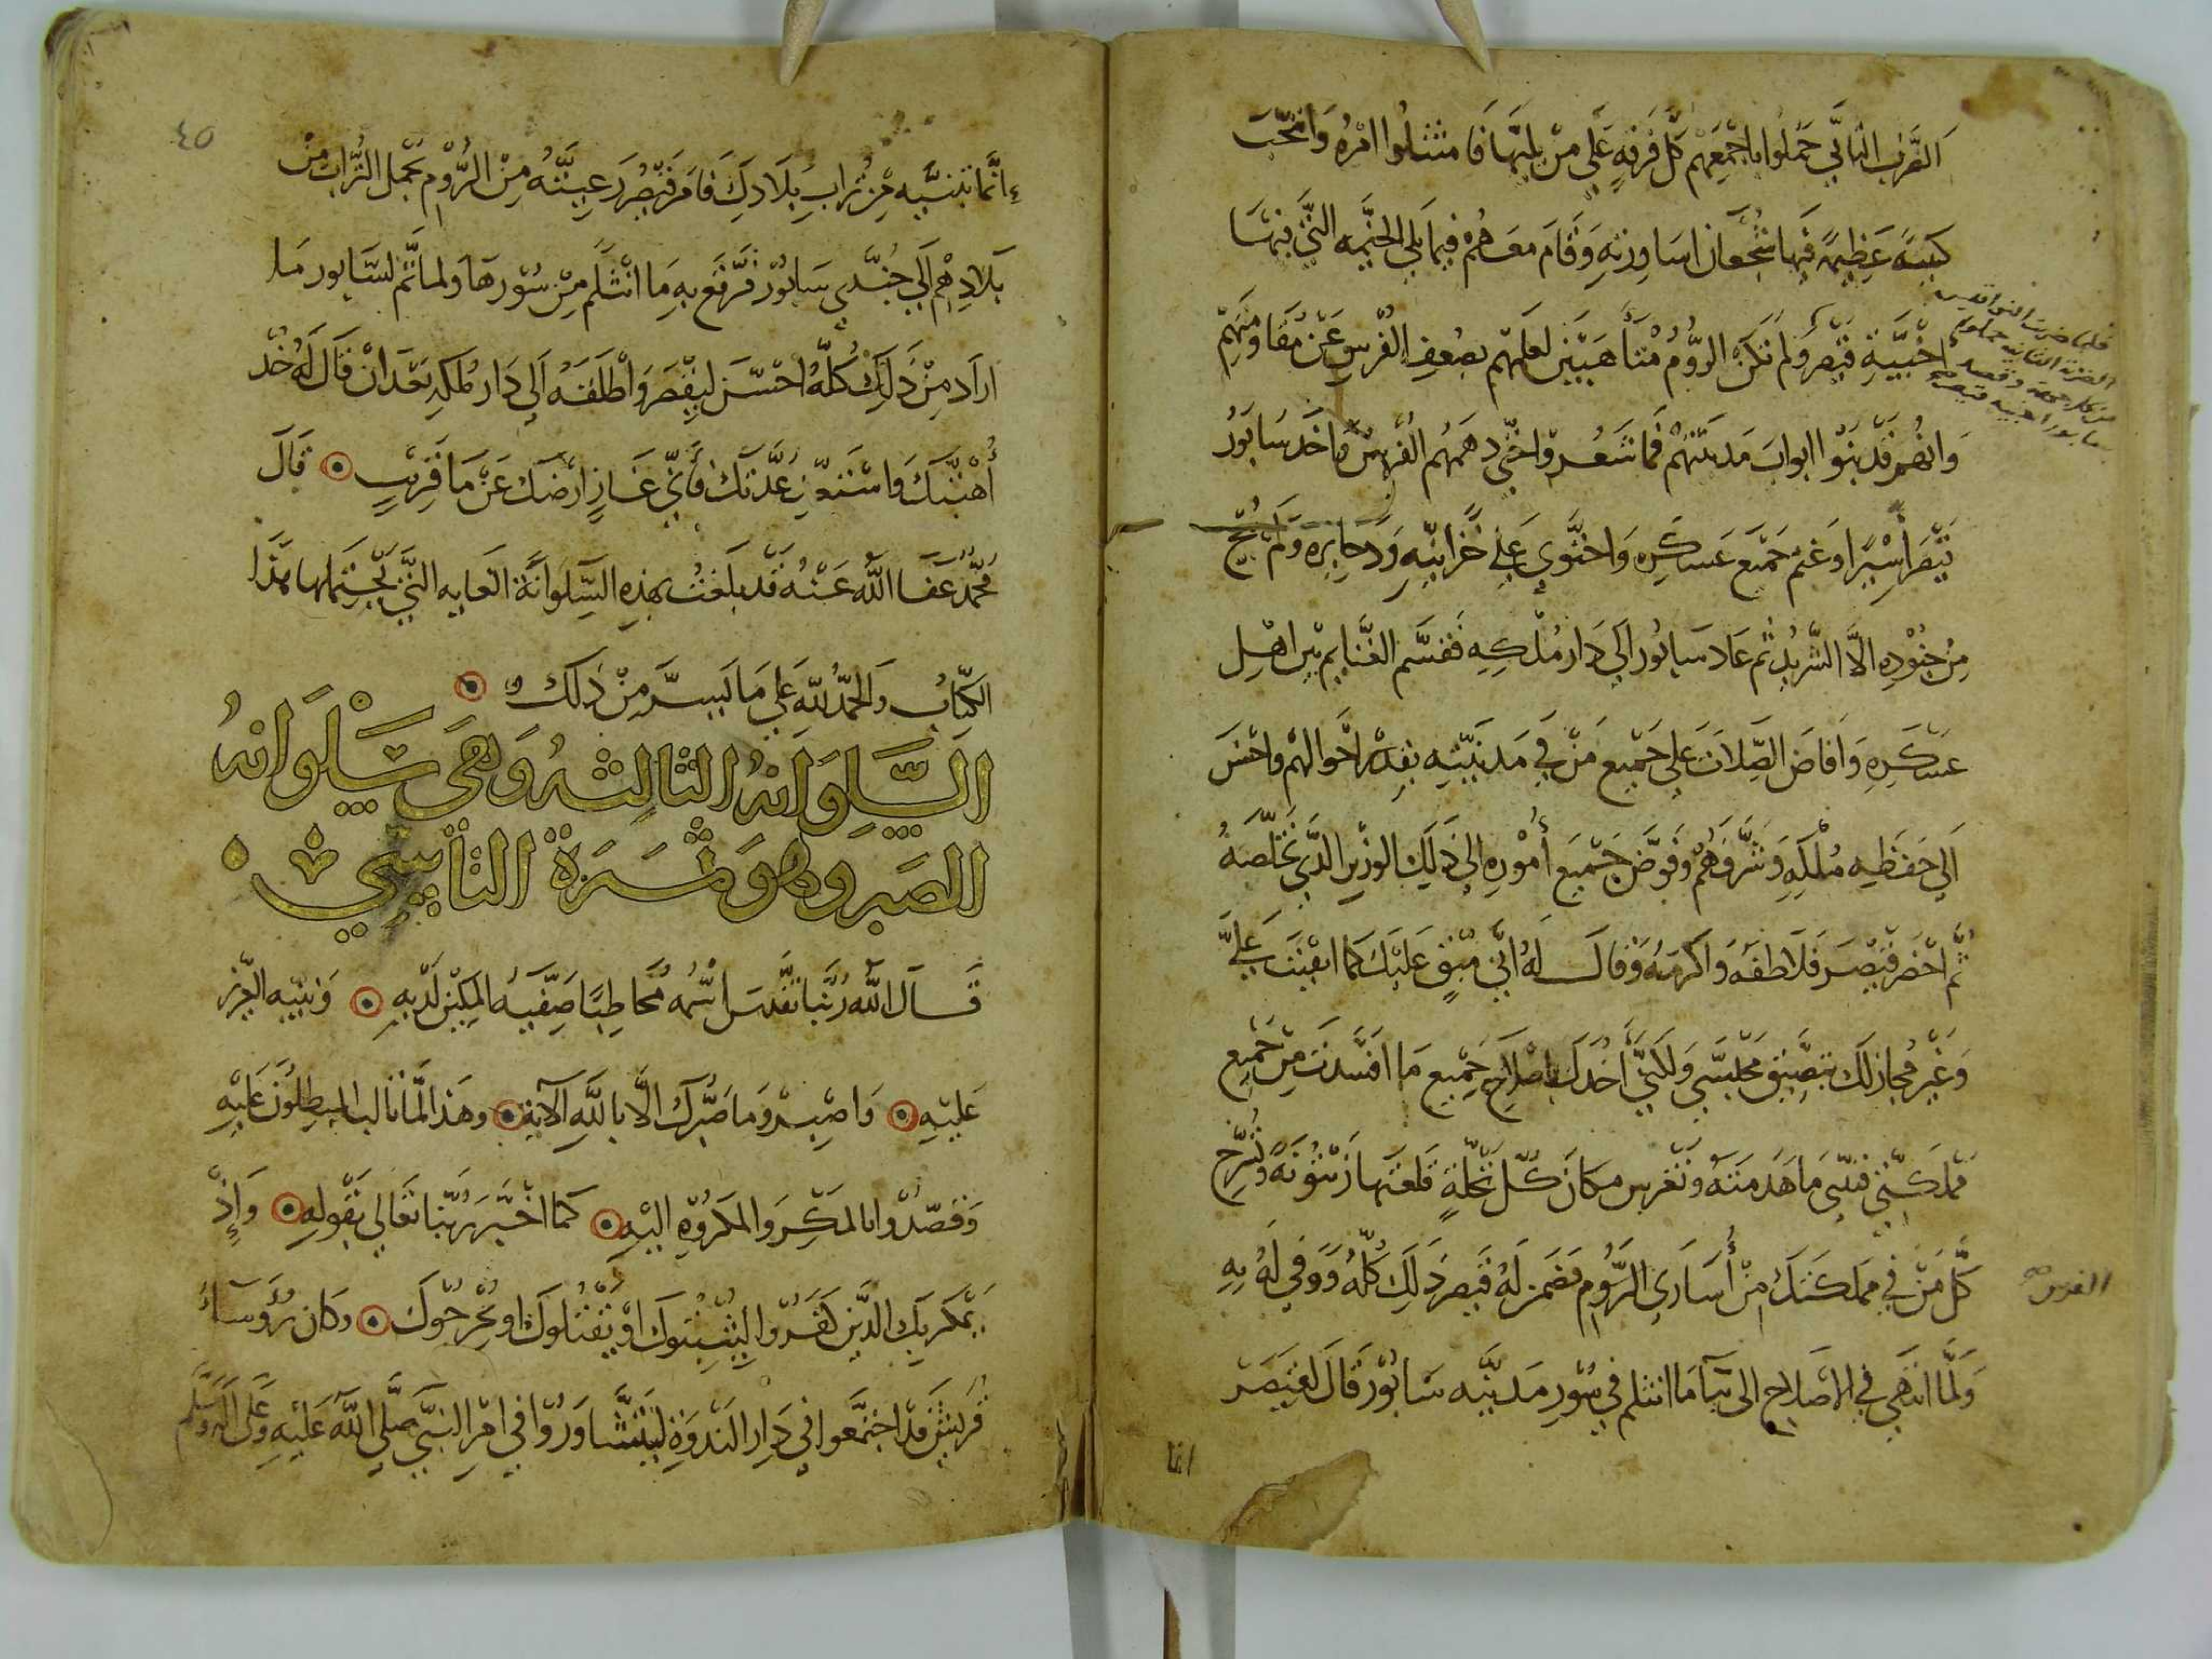 الضرب الثاني حملوا باجمعهم كل فرقة على من يليها فامتثلوا امره وانتخب
كتيبة عظيمة فيها شجعان اساورته وقام معهم فيما يلي الخيمة التي فيها
اخبية قيصر ولم تكن الروم متأهبين لعلمهم بضعف الفرس عن مقاومتهم
فلما ضربت النواقيس
الضربة الثانية حملوا
من كل جهة وقصد
سابور اخبية قيصر
وانهم قد بنوا ابواب مدينتهم فما شعروا حتى دهمهم الفرس واخذ سابور
قيصر أسيرا وغنم جميع عسكره واحتوى على خزاينه وذخايره ولم ينج
من جنوده الا الشريد ثم عاد سابور الى دار ملكه فقسم الغنايم بين اهل
عسكره وافاض الصلات على جميع من في مدينته بقدر احوالهم واحسن
الى حفظة ملكه وشرفهم وفوض جميع أموره الى ذلك الوزير الذي خلصه
ثم احضر قيصر فلاطفه واكرمه وقال له اني مبق عليك كما ابقيت علي
وغير مجاز لك بتضييق محبسي ولكني أخذك باصلاح جميع ما افسدت من جميع
مملكتي فتبني ما هدمته وتغرس مكان كل نخلة قلعتها زيتونة وتسرح
كل من في مملكتك من أسارى الروم فضمن له قيصر ذلك كله ووفى له به
الفرس صح
ولما انتهى في الاصلاح الى بنآ ما انثلم في سور مدينة سابور قال لقيصر
انما
٤٥
إنما تبنيه من تراب بلادك فامر قيصر رعيته من الروم بحمل التراب من
بلادهم الى جندي سابور فرقع به ما انثلم من سورها ولما تم لسابور ما
اراد من ذلك كله احسن لقيصر واطلقه الى دار ملكه بعد ان قال له خذ
أهبتك واستعد عدتك فأني غاز ارضك عن ما قريب قال
محمد عفا الله عنه قد بلغت بهذه السلوانة الغاية التي يحتملها هذا
الكتاب والحمد لله على ما يسر من ذلك
السلوانة الثالثة وهي سلوانة
الصبر وهو ثمرة التأسي
قال الله ربنا تقدس اسمه مخاطبا صفيه المكين لديه ونبيه العزيز
عليه واصبر وما صبرك الا بالله الآية وهذا لما تالب المبطلون عليه
وقصدوا بالمكر والمكروه اليه كما اخبر ربنا تعالى بقوله وإذ
يمكر بك الذين كفروا ليثبتوك او يقتلوك او يخرجوك وكان رؤساء
قريش قد اجتمعوا في دار الندوة ليتشاوروا في امر النبي صلى الله عليه وعلى آله وسلم